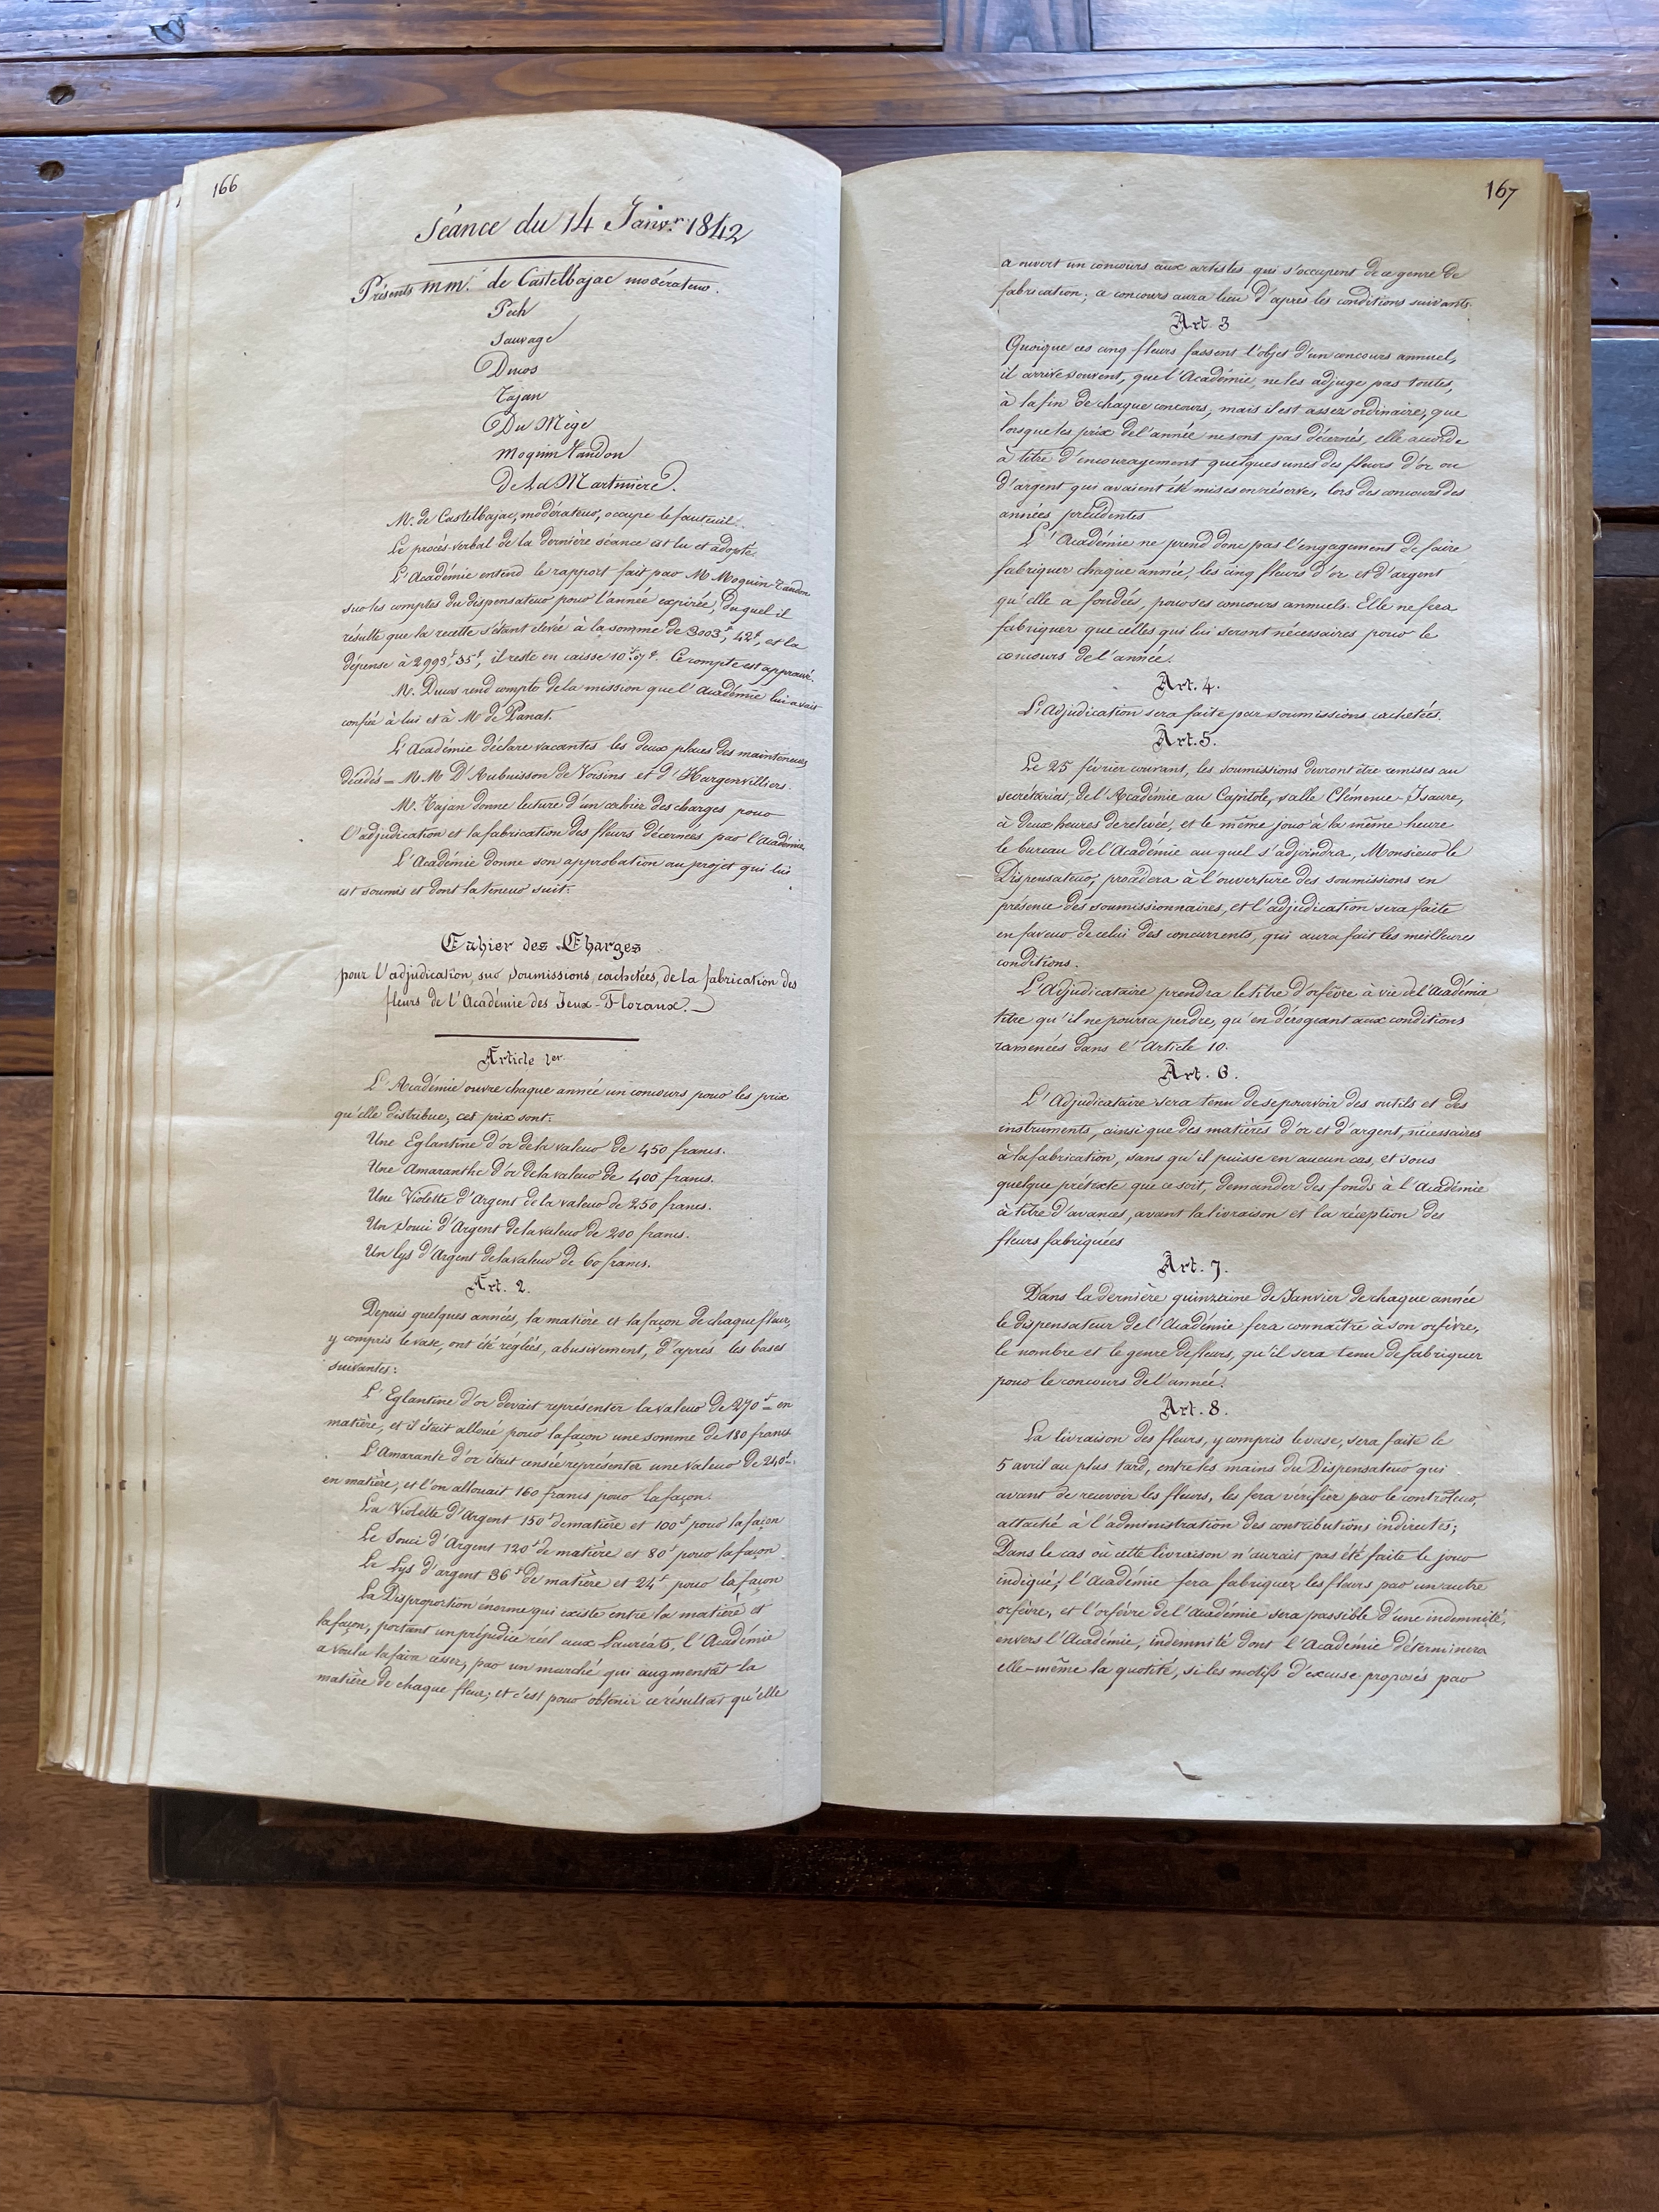 166
Séance du 14 Janvr. 1842
Présents mm. de Castelbajac modérateur.
Pech
Sauvage
Ducos
Tajan
Du Mège
Moquin Tandon
De La Martinière.
M. de Castelbajac, modérateur, occupe le fauteuil.
Le procès-verbal de la dernière séance est lu et adopté.
L'Académie entend le rapport fait par M. Moquin-Tandon
sur les comptes du dispensateur pour l'année expirée, Duquel il
résulte que la recette s'étant elevée à la somme de 3003f, 42c, et la
dépense à 2993f, 35c, il reste en caisse 10f.07c. Ce compte est approuvé.
M. Ducos rend compte de la mission que l'Académie lui avait
confiée à lui et à Mr de Panat.
L'Académie déclare vacantes les deux places des mainteneurs
décédés = M.M D'Aubuisson de Voisins et d'Hargenvilliers.
M. Tajan donne lecture d'un cahier des charges pour
l'adjudication et la fabrication des fleurs décernées par l'Académie.
L'Académie donne son approbation au projet qui lui
est soumis et dont la teneur suit.
Cahier des Charges
pour l'adjudication, sur Soumissions cachetées, de la fabrication des
fleurs de l'Académie des Jeux-Floraux.
Article 1er.
L'Académie ouvre chaque année un concours pour les prix
qu'elle distribue, ces prix sont:
Une Eglantine d'or de la valeur de 450 francs.
Une Amaranthe d'or de la valeur de 400 francs.
Une Violette d'Argent de la valeur de 250 francs.
Un Souci d'Argent de la valeur de 200 francs.
Un lys d'Argent de la valeur de 60 francs.
Art. 2.
Depuis quelques années, la matière et la façon de chaque fleur,
y compris le vase, ont été réglées, abusivement, d'après les bases
suivantes:
L'Eglantine d'or devait représenter la valeur de 270f = en
matière, et il était alloué pour la façon une somme de 180 francs
L'Amarante d'or était censée représenter une valeur de 240f.
en matière, et l'on allouait 160 francs pour la façon.
La Violette d'Argent 150f de matière et 100f pour la façon
Le Souci d'Argent 120f de matière et 80f pour la façon
Le Lys d'argent 36f de matière et 24f pour la façon
La Disproportion énorme qui existe entre la matière et
la façon, portant un préjudice réel aux Lauréats, l'Académie
a voulu la faire cesser, par un marché qui augmentât la
matière de chaque fleur; et c'est pour obtenir ce résultat qu'elle
167
a ouvert un concours aux artistes qui s'occupent de ce genre de
fabrication; ce concours aura lieu d'après les conditions suivants.
Art. 3
Quoique ces cinq fleurs fassent l'objet d'un concours annuel,
il arrive souvent, que l'Académie, ne les adjuge pas toutes,
à la fin de chaque concours, mais il est assez ordinaire, que
lorsque les prix de l'année ne sont pas décernés, elle accorde
à titre d'encouragement quelques unes des fleurs d'or ou
d'argent qui avaient été mises en réserve, lors des concours des
années précédentes
L'Académie ne prend donc pas l'engagement de faire
fabriquer chaque année, les cinq fleurs d'or et d'argent
qu'elle a fondées, pour ses concours annuels. Elle ne fera
fabriquer que celles qui lui seront nécessaires pour le
concours de l'année.
Art. 4.
L'adjudication sera faite par soumissions cachetées.
Art. 5.
Le 25 février courant, les soumissions devront être remises au
secrétariat, de l'Académie au Capitole, salle Clémence-Isaure,
à deux heures de relevée, et le même jour à la même heure
le bureau de l'Académie au quel s'adjoindra, Monsieur le
Dispensateur, procédera à l'ouverture des soumissions en
présence des soumissionnaires, et l'adjudication sera faite
en faveur de celui des concurrents, qui aura fait les meilleures
conditions.
L'Adjudicataire prendra le titre d'orfèvre à vie de l'Académie
titre qu'il ne pourra perdre, qu'en dérogeant aux conditions
ramenées dans l'Article 10.
Art. 6.
L'Adjudicataire sera tenu de se pourvoir des outils et des
instruments, ainsi que des matières d'or et d'argent, nécessaires
à la fabrication, sans qu'il puisse en aucun cas, et sous
quelque prétexte que ce soit, demander des fonds à l'Académie
à titre d'avances, avant la livraison et la réception des
fleurs fabriquées
Art. 7.
Dans la dernière quinzaine de Janvier de chaque année
le dispensateur de l'Académie fera connaître à son orfèvre,
le nombre et le genre de fleurs, qu'il sera tenu de fabriquer
pour le concours de l'année.
Art. 8.
La livraison des fleurs, y compris le vase, sera faite le
5 avril au plus tard, entre les mains du Dispensateur qui
avant de recevoir les fleurs, les fera vérifier par le contrôleur,
attaché à l'administration des contributions indirectes;
Dans le cas où cette livraison n'aurait pas été faite le jour
indiqué, l'Académie fera fabriquer les fleurs par un autre
orfèvre, et l'orfèvre de l'Académie sera passible d'une indemnité,
envers l'Académie, indemnité dont l'Académie déterminera
elle-même la quotité, si les motifs d'excuse proposés par